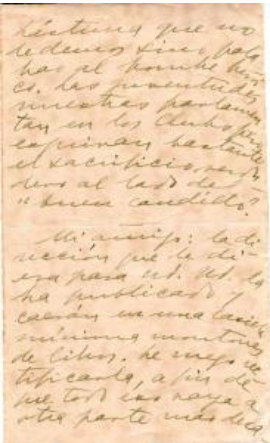 lástima que no
le demos sino pala
bras al hombre
Las juventudes
nuestras parlamen
tan en los clubs, pero
esquivan bastante
el sacrificio
dero al lado del
"buen caudillo".
Mi amigo: la di
rección que le di
era para Ud. Ud. la
ha publicado y
caerán en una casilla
mínima montones
de libros. Le ruego rec
tificarla, a fin de
que todo eso vaya a
otra parte más